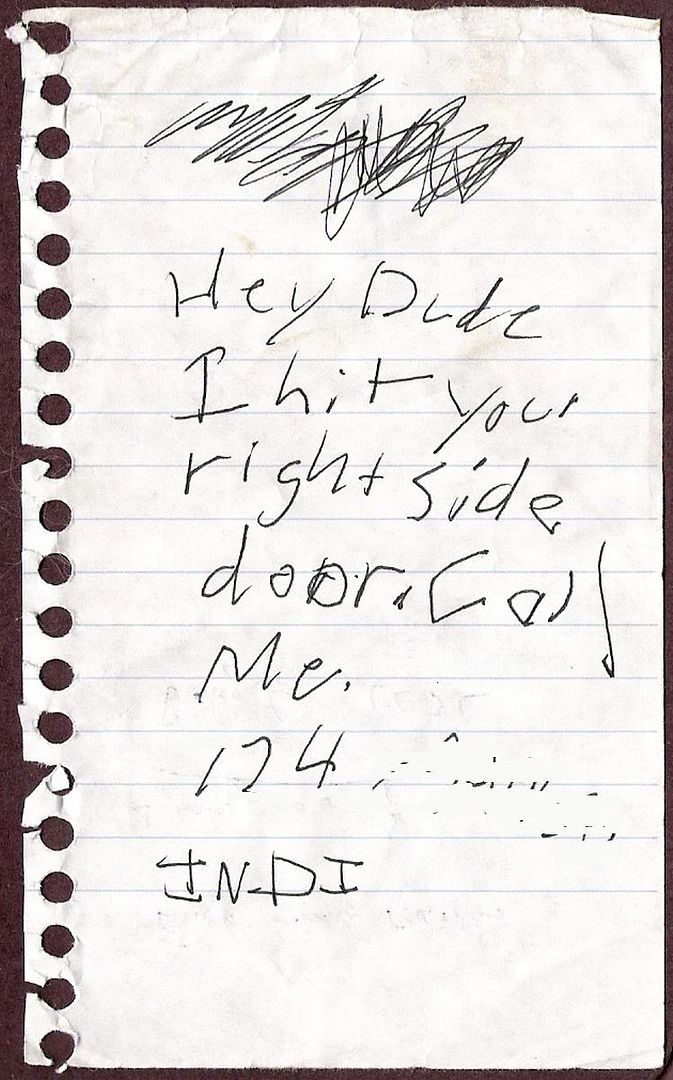 Hey Dude
I hit your
right side
door. Call
Me.
174
INDI